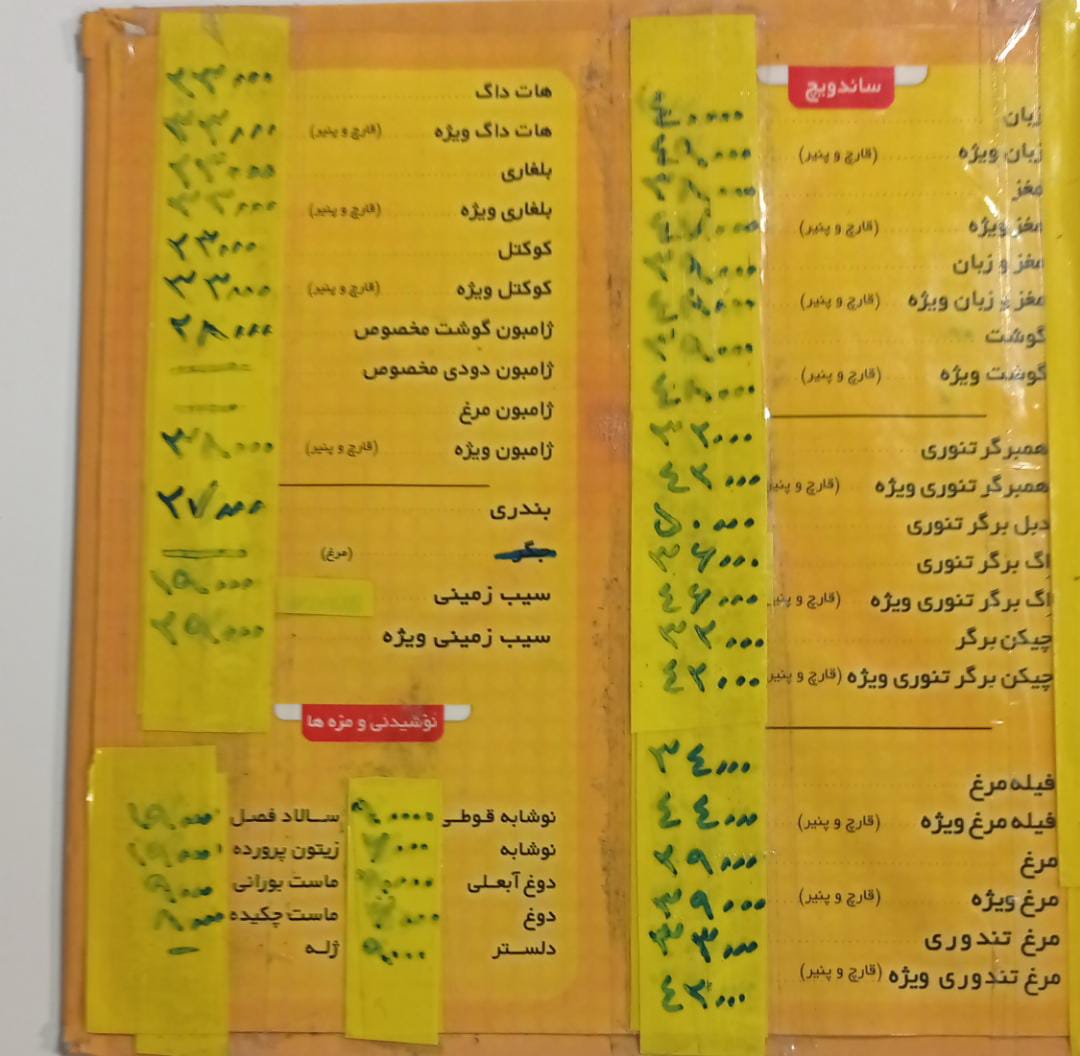 ساندویچ
زبان
زبان ویژه (قارچ و پنیر)
مغز
مغز ویژه (قارچ و پنیر)
مغز و زبان
مغز و زبان ویژه (قارچ و پنیر)
گوشت
گوشت ویژه (قارچ و پنیر)
همبرگر تنوری ۳۲۰۰۰
همبرگر تنوری ویژه (قارچ و پنیر ۴۲۰۰۰
دبل برگر تنوری ۵۰۰۰۰
اگ برگر تنوری ۳۶۰۰۰
اگ برگر تنوری ویژه (قارچ و پنیر ۴۶۰۰۰
چیکن برگر ۳۲۰۰۰
چیکن برگر تنوری ویژه (قارچ و پنیر ۴۲۰۰۰
فیله مرغ ۳۴۰۰۰
فیله مرغ ویژه (قارچ و پنیر) ۴۴۰۰۰
مرغ ۲۹۰۰۰
مرغ ویژه (قارچ و پنیر) ۳۹۰۰۰
مرغ تندوری ۳۳۰۰۰
مرغ تندوری ویژه (قارچ و پنیر)
هات داگ ۲۳۰۰۰
هات داگ ویژه (قارچ و پنیر) ۳۳۰۰۰
بلغاری
بلغاری ویژه (قارچ و پنیر)
کوکتل ۲۳۰۰۰
کوکتل ویژه (قارچ و پنیر) ۳۳۰۰۰
ژامبون گوشت مخصوص ۲۸۰۰۰
ژامبون دودی مخصوص
ژامبون مرغ
ژامبون ویژه (قارچ و پنیر) ۳۸۰۰۰
بندری ۲۷۰۰۰
(مرغ)
سیب زمینی ۱۵۰۰۰
سیب زمینی ویژه ۲۵۰۰۰
نوشیدنی و مزه ها
نوشابه قوطی
نوشابه
دوغ آبعلی
دوغ
دلستر
سالاد فصل
زیتون پرورده
ماست بورانی
ماست چکیده
ژله